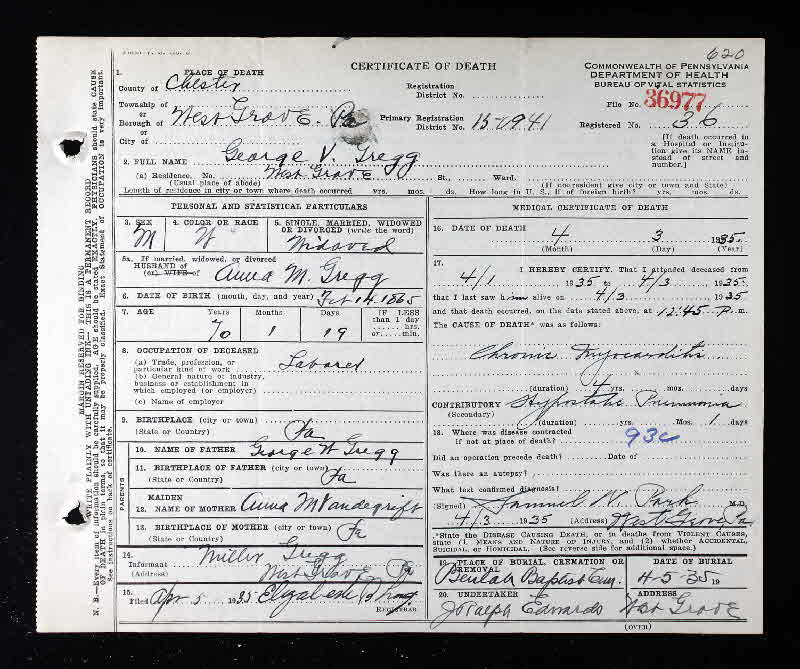 620
CERTIFICATE OF DEATH
COMMONWEALTH OF PENNSYLVANIA
DEPARTMENT OF HEALTH
BUREAU OF VITAL STATISTICS
1. PLACE OF DEATH
County of Chester
Registration
District No.
File No. 36977
Township of
or
Borough of West Grove. Pa
or
City of
Primary Registration
District No. 15-0941
Registered No. 36
[If death occurred in
a Hospital or Institu-
tion give its NAME in-
stead of street and
number.]
2. FULL NAME George V. Gregg
(a) Residence. No. West Grove St., Ward.
(Usual place of abode) (If nonresident give city or town and State)
Length of residence in city or town where death occurred yrs. mos. ds. How long in U. S., if of foreign birth? yrs. mos. ds.
PERSONAL AND STATISTICAL PARTICULARS
3. SEX
M
4. COLOR OR RACE
W
5. SINGLE, MARRIED, WIDOWED
OR DIVORCED (write the word)
Widowed
5a. If married, widowed, or divorced
HUSBAND of
(or) WIFE of Anna M. Gregg
6. DATE OF BIRTH (month, day, and year) Feb 14 1865
7. AGE Years Months Days IF LESS
than 1 day
hrs.
or min.
70 1 19
8. OCCUPATION OF DECEASED
(a) Trade, profession, or
particular kind of work Laborer
(b) General nature of industry,
business or establishment in
which employed (or employer)
(c) Name of employer
9. BIRTHPLACE (city or town)
(State or Country) Pa
PARENTS
10. NAME OF FATHER George W Gregg
11. BIRTHPLACE OF FATHER (city or town)
(State or Country) Pa
12. MAIDEN
NAME OF MOTHER Anna M Vandegrift
13. BIRTHPLACE OF MOTHER (city or town)
(State or Country) Pa
14.
Informant Miller Gregg
(Address) West Grove Pa
15.
Filed Apr 5 1935 Elizabeth
REGISTRAR
MEDICAL CERTIFICATE OF DEATH
16. DATE OF DEATH 4 3 1935
(Month) (Day) (Year)
17.
I HEREBY CERTIFY, That I attended deceased from
4/1 1935 to 4/3 1935
that I last saw him alive on 4/3 1935
and that death occurred, on the date stated above, at 12:45 P.m.
The CAUSE OF DEATH* was as follows:
Chronic Myocarditis
(duration) 4 yrs. mos. days
CONTRIBUTORY Hypostatic Pneumonia
(Secondary)
(duration) yrs. mos. 1 days
18. Where was disease contracted
if not at place of death? 93c
Did an operation precede death? Date of
Was there an autopsy?
What test confirmed diagnosis?
(Signed) Samuel W. Park M.D.
4/3 1935 (Address) West Grove Pa
*State the DISEASE CAUSING DEATH, or in deaths from VIOLENT CAUSES,
state (1) MEANS AND NATURE OF INJURY, and (2) whether ACCIDENTAL,
SUICIDAL, or HOMICIDAL. (See reverse side for additional space.)
19. PLACE OF BURIAL, CREMATION OR
REMOVAL
Beulah Baptist Cem.
DATE OF BURIAL
4-5-35 19
20. UNDERTAKER
Joseph Edwards
ADDRESS
West Grove
(OVER)
MARGIN RESERVED FOR BINDING
WRITE PLAINLY WITH UNFADING INK—THIS IS A PERMANENT RECORD
N. B.—Every item of information should be carefully supplied. AGE should be stated EXACTLY. PHYSICIANS should state CAUSE
OF DEATH in plain terms, so that it may be properly classified. Exact Statement of OCCUPATION is very important.
See instructions on back of certificate.